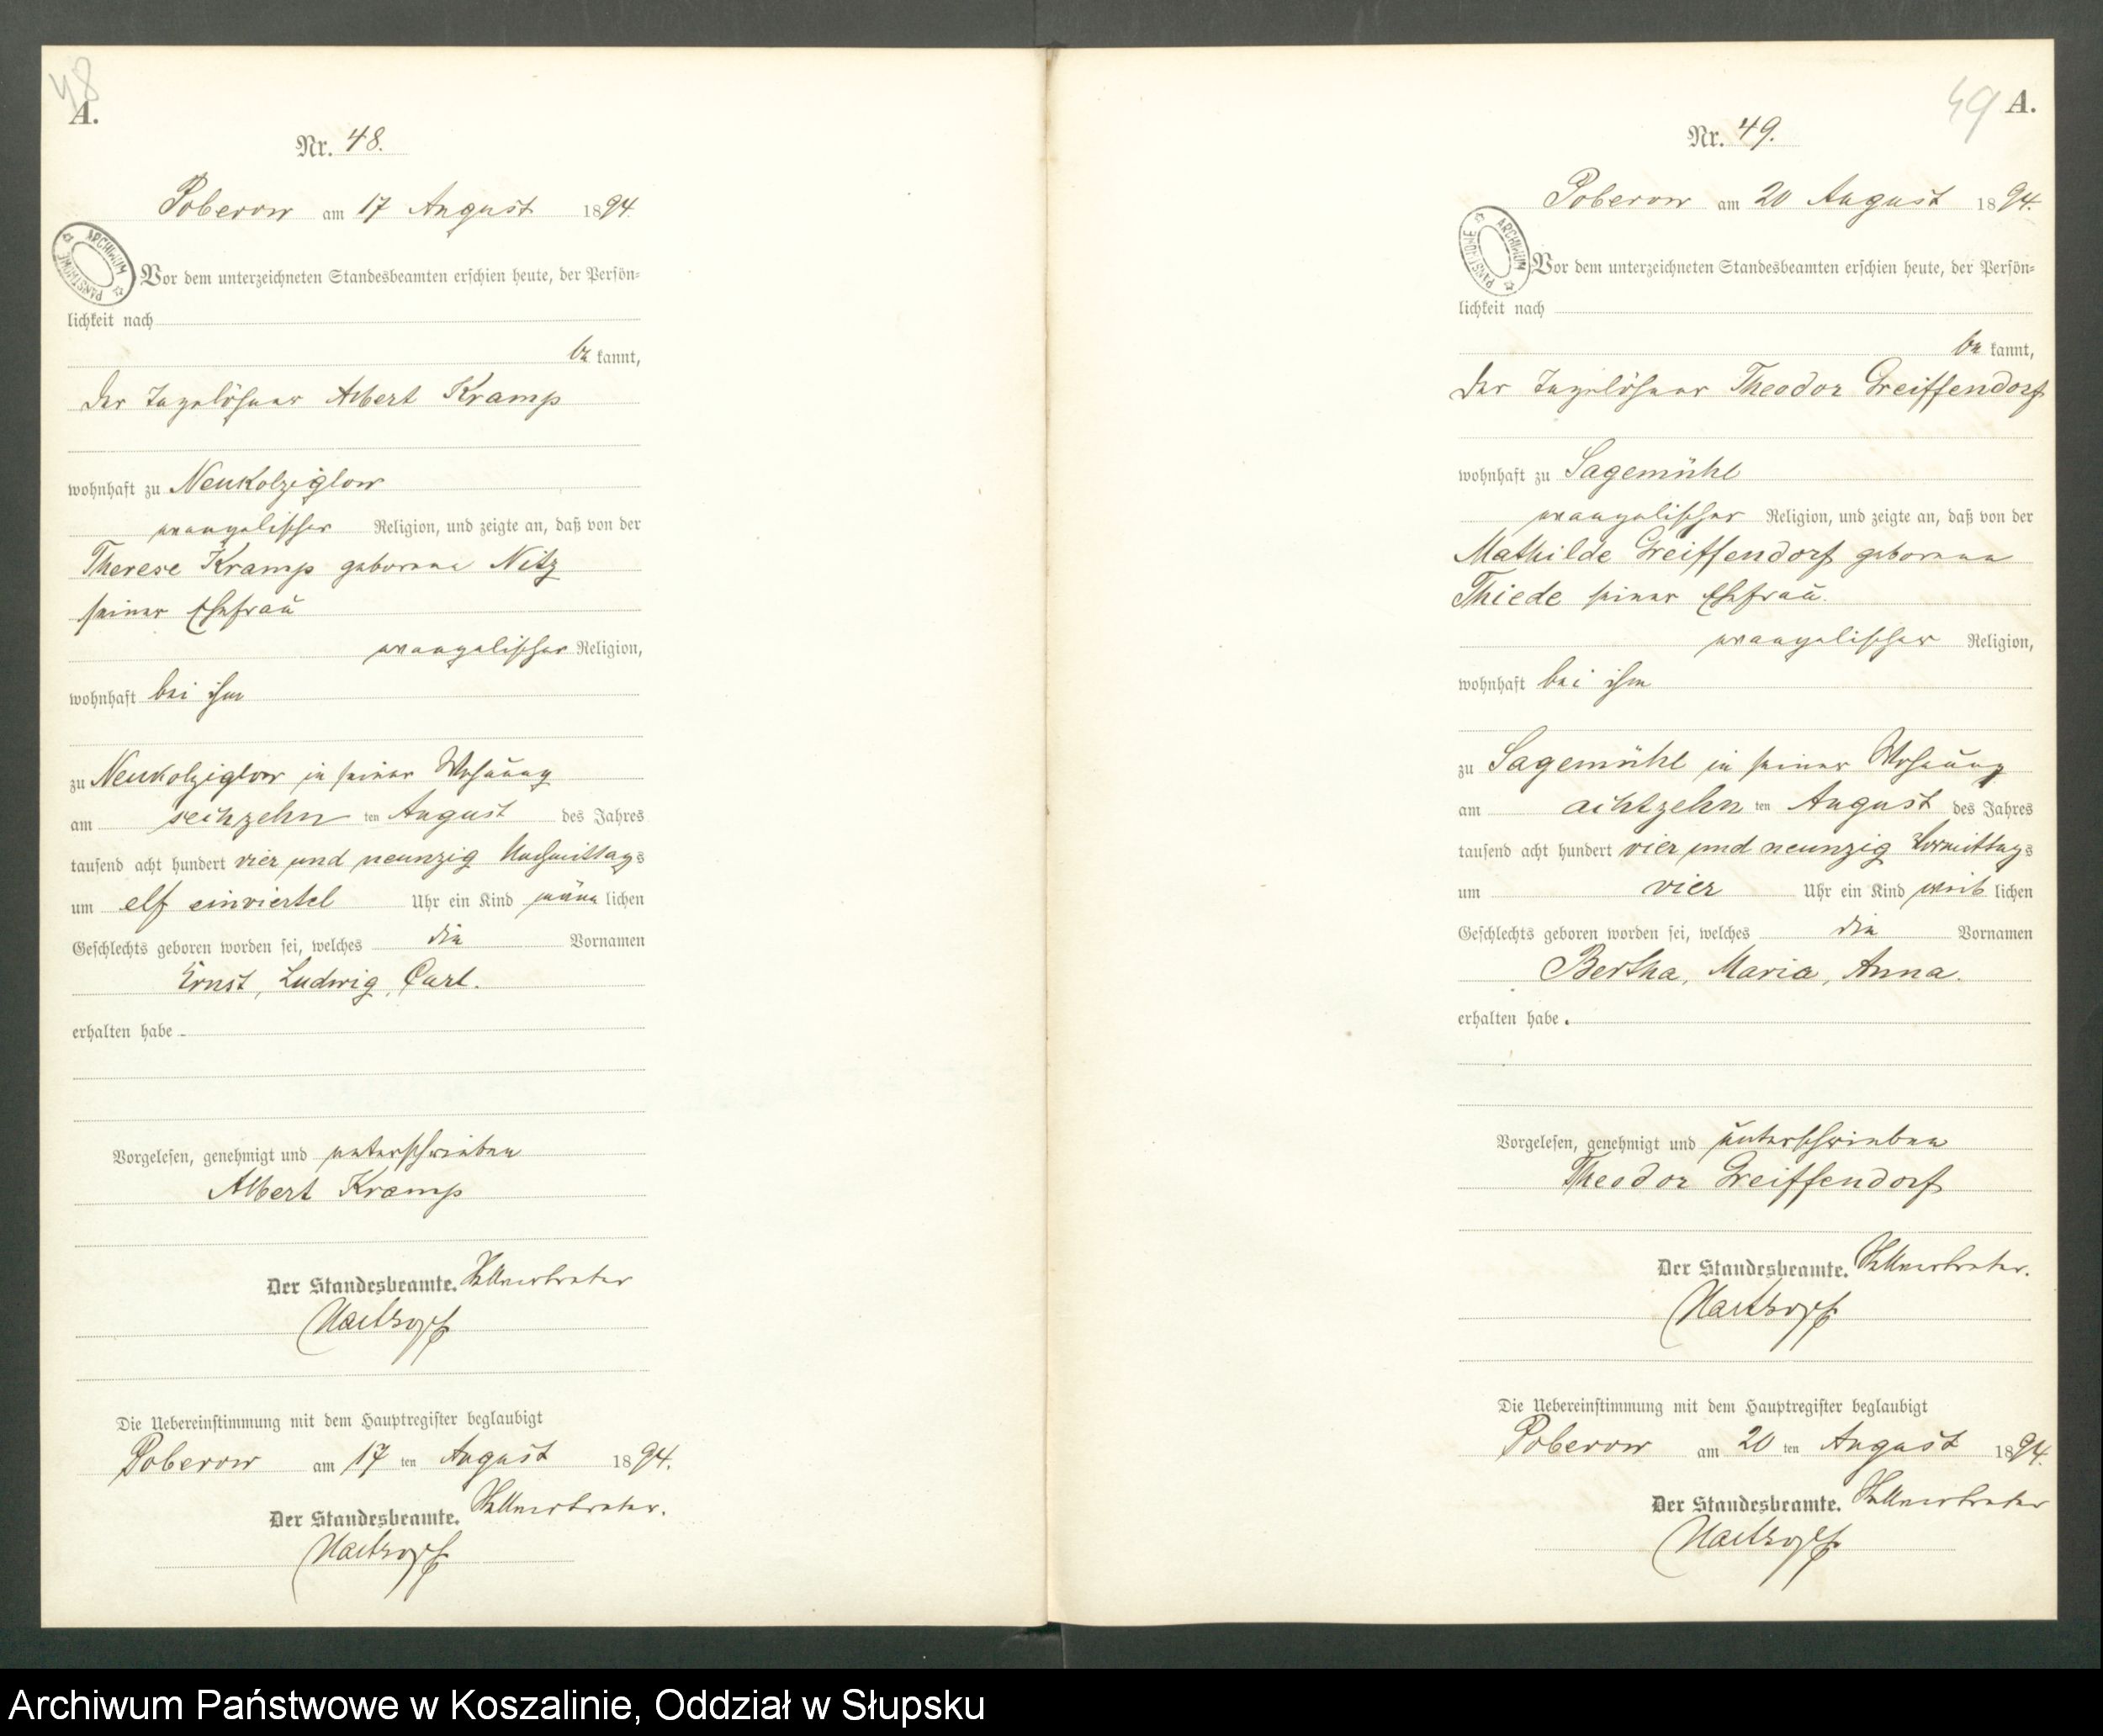 48
A.
Nr. 48.
Poberow am 17 August 1894.
ARCHIWUM PAŃSTWOWE
Vor dem unterzeichneten Standesbeamten erschien heute, der Persön-
lichkeit nach
be kannt,
der Tagelöhner Albert Kramp
wohnhaft zu Neukolziglow
evangelischer Religion, und zeigte an, daß von der
Therese Kramp geborene Nitz
seiner Ehefrau
evangelischer Religion,
wohnhaft bei ihm
zu Neukolziglow in seiner Wohnung
am sechzehn ten August des Jahres
tausend acht hundert vier und neunzig Nachmittags
um elf einviertel Uhr ein Kind männ lichen
Geschlechts geboren worden sei, welches die Vornamen
Ernst, Ludwig, Carl.
erhalten habe
Vorgelesen, genehmigt und unterschrieben
Albert Kramp
Der Standesbeamte. Stellvertreter
Die Uebereinstimmung mit dem Hauptregister beglaubigt
Poberow am 17 ten August 1894.
Der Standesbeamte. Stellvertreter.
49 A.
Nr. 49.
Poberow am 20 August 1894.
ARCHIWUM PAŃSTWOWE
Vor dem unterzeichneten Standesbeamten erschien heute, der Persön-
lichkeit nach
be kannt,
der Tagelöhner Theodor Greiffendorf
wohnhaft zu Sagemühl
evangelischer Religion, und zeigte an, daß von der
Mathilde Greiffendorf geborene
Thiede seiner Ehefrau.
evangelischer Religion,
wohnhaft bei ihm
zu Sagemühl in seiner Wohnung
am achtzehn ten August des Jahres
tausend acht hundert vier und neunzig Vormittags
um vier Uhr ein Kind weib lichen
Geschlechts geboren worden sei, welches die Vornamen
Bertha, Maria, Anna.
erhalten habe.
Vorgelesen, genehmigt und unterschrieben
Theodor Greiffendorf
Der Standesbeamte. Stellvertreter.
Die Uebereinstimmung mit dem Hauptregister beglaubigt
Poberow am 20 ten August 1894.
Der Standesbeamte. Stellvertreter
Archiwum Państwowe w Koszalinie, Oddział w Słupsku